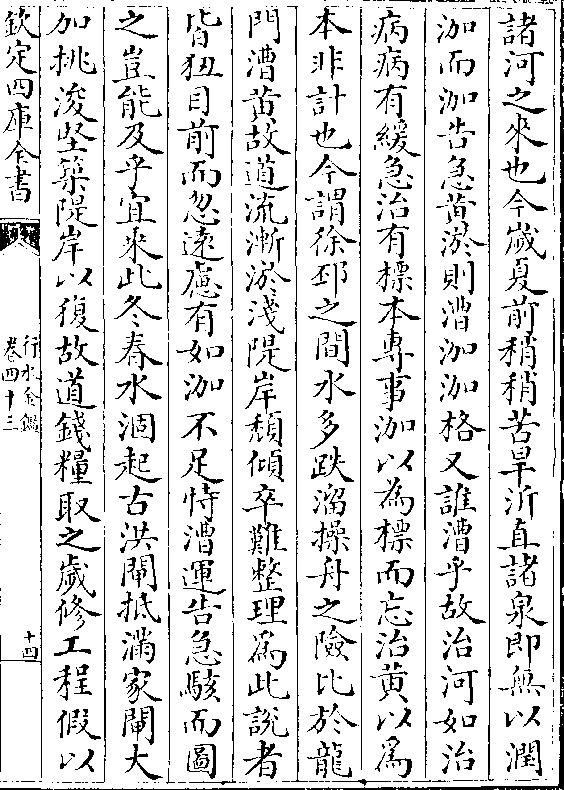 諸河之來也今嵗夏前稍稍苦旱沂直諸泉即無以潤
泇而泇告急黄淤則漕泇泇格又誰漕乎故治河如治
病病有緩急治有標本專事泇以為標而忘治黄以為
本非計也今謂徐邳之間水多跌溜操舟之險比於龍
門漕黄故道流漸淤淺隄岸頽傾卒難整理為此説者
皆狃目前而忽逺慮有如泇不足恃漕運告急駭而圖
之豈能及乎宜來此冬春水涸起古洪閘抵滿家閘大
加挑浚堅築隄岸以復故道錢糧取之嵗修工程假以
欽定四庫全書
行水金鑑
卷四十三
十四